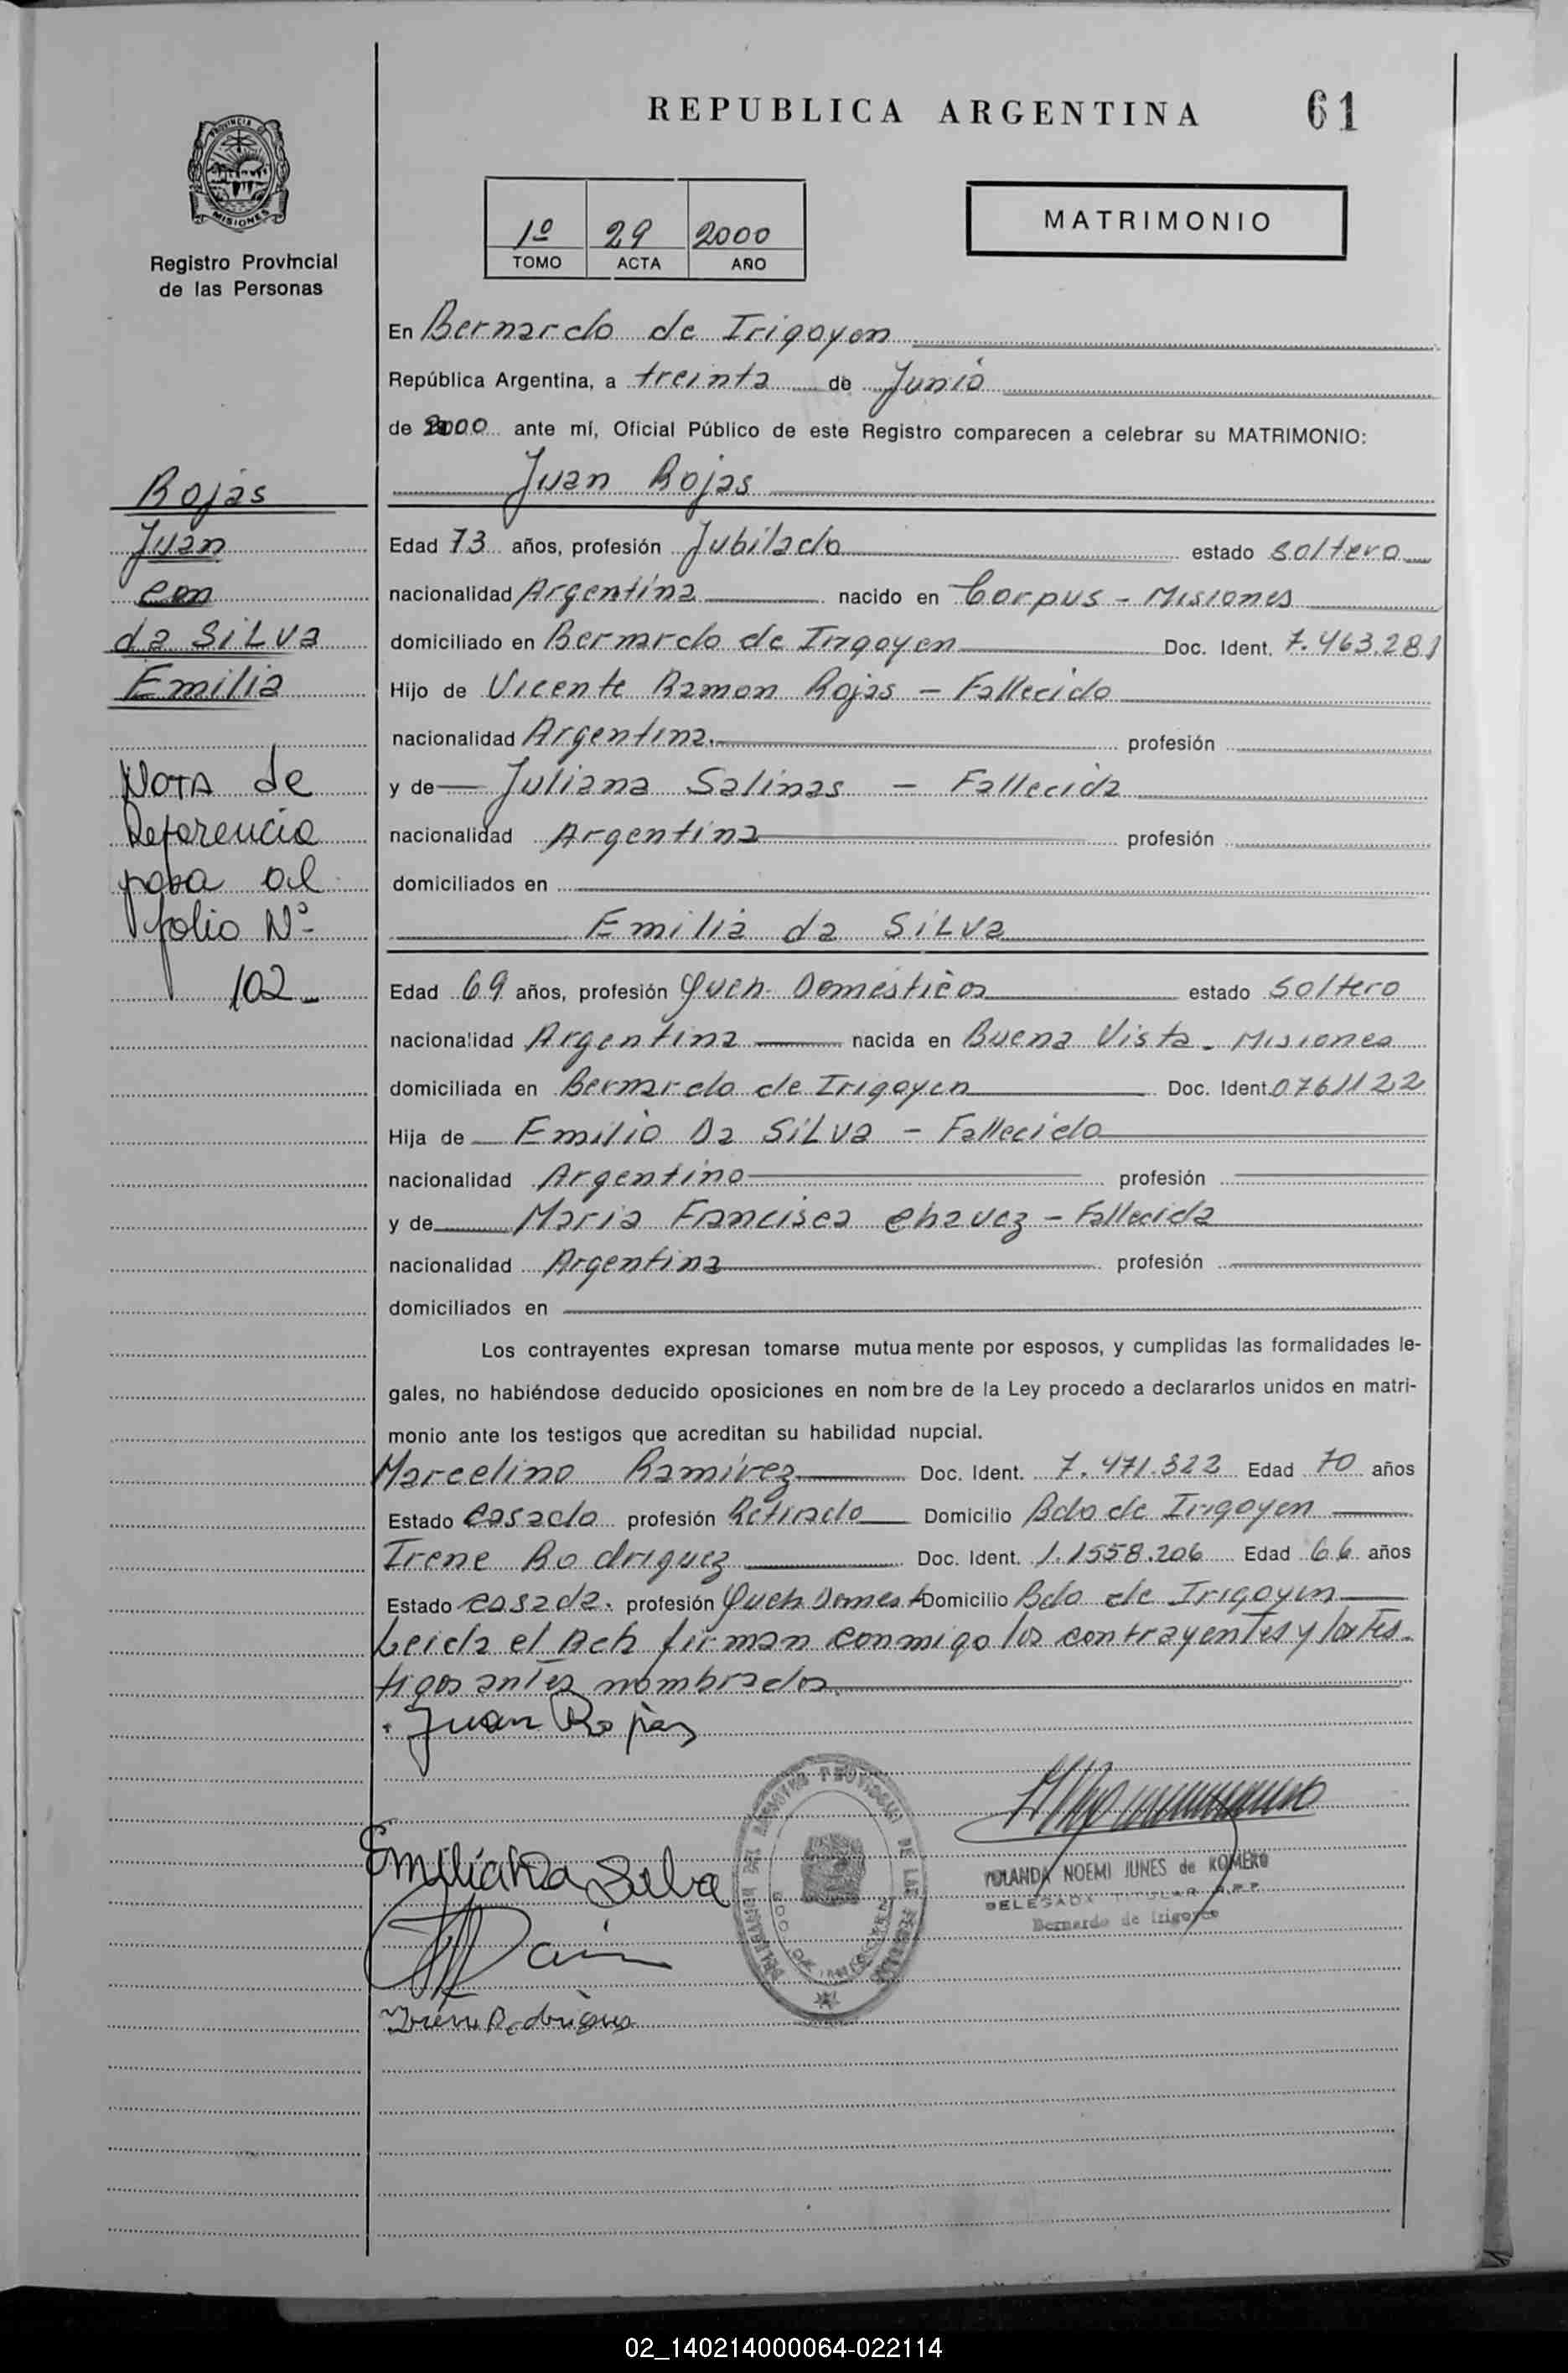 REPUBLICA ARGENTINA 61
PROVINCIA DE
MISIONES
Registro Provincial
de las Personas
1º 29 2000
TOMO ACTA AÑO
MATRIMONIO
En Bernardo de Irigoyen
República Argentina, a treinta de Junio
de 2000 ante mí, Oficial Público de este Registro comparecen a celebrar su MATRIMONIO:
Juan Rojas
Rojas
Juan
con
da SiLva
Emilia
Nota de
Referencia
pasa al
folio Nº
102
Edad 73 años, profesión Jubilado estado soltero
nacionalidad Argentina nacido en Corpus - Misiones
domiciliado en Bernardo de Irigoyen Doc. Ident. 7.463.281
Hijo de Vicente Ramon Rojas - Fallecido
nacionalidad Argentina. profesión
y de Juliana Salinas - Fallecida
nacionalidad Argentina profesión
domiciliados en
Emilia da SiLva
Edad 69 años, profesión Queh. Domésticos estado soltero
nacionalidad Argentina nacida en Buena Vista - Misiones
domiciliada en Bernardo de Irigoyen Doc. Ident. 0761122
Hija de Emilio Da SiLva - Fallecido
nacionalidad Argentino profesión
y de Maria Francisca Chavez - Fallecida
nacionalidad Argentina profesión
domiciliados en
Los contrayentes expresan tomarse mutuamente por esposos, y cumplidas las formalidades le-
gales, no habiéndose deducido oposiciones en nombre de la Ley procedo a declararlos unidos en matri-
monio ante los testigos que acreditan su habilidad nupcial.
Marcelino Ramírez Doc. Ident. 7.471.322 Edad 70 años
Estado casado profesión Retirado Domicilio Bdo de Irigoyen
Irene Rodriguez Doc. Ident. 1.1558.206 Edad 66 años
Estado casada. profesión Queh Domest Domicilio Bdo de Irigoyen
Leida el Acta firman conmigo los contrayentes y los tes-
tigos antes nombrados.
Juan Rojas
Emilia Da Silva
YOLANDA NOEMI JUNES de ROMERO
DELEGADA TITULAR R.P.P.
Bernardo de Irigoyen
Irene Rodrigues
02_140214000064-022114